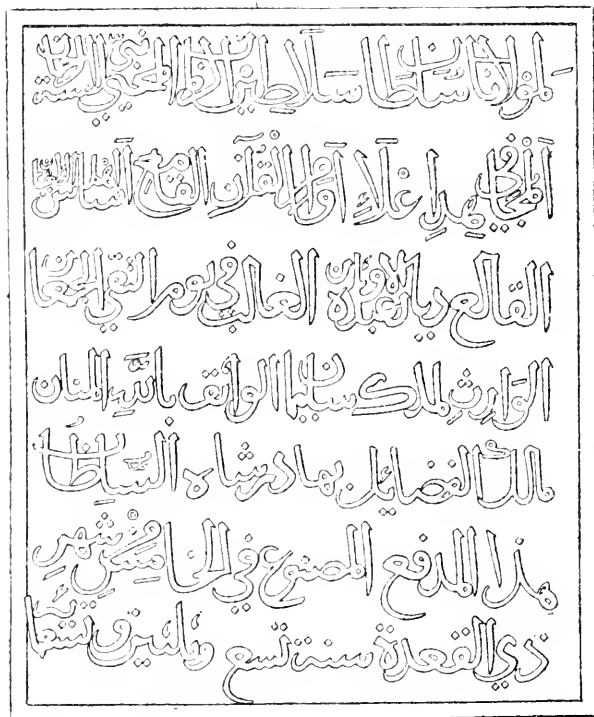 لمولانا سلطان سلاطين الزمان المحيي لسنة نبي الرحمن
المجاهد في إعلاء أوامر القرآن القامع
القالع ديار عبدة الاوثان الغالب في يوم التقي الجمعان
الوارث لملك سليمان الواثق بالله المنان
مالك الفضائل بهادرشاه السلطان
هذا المدفع المصنوع في الخامس من شهر
ذي القعدة سنة تسع وثلثين وتسعمائة